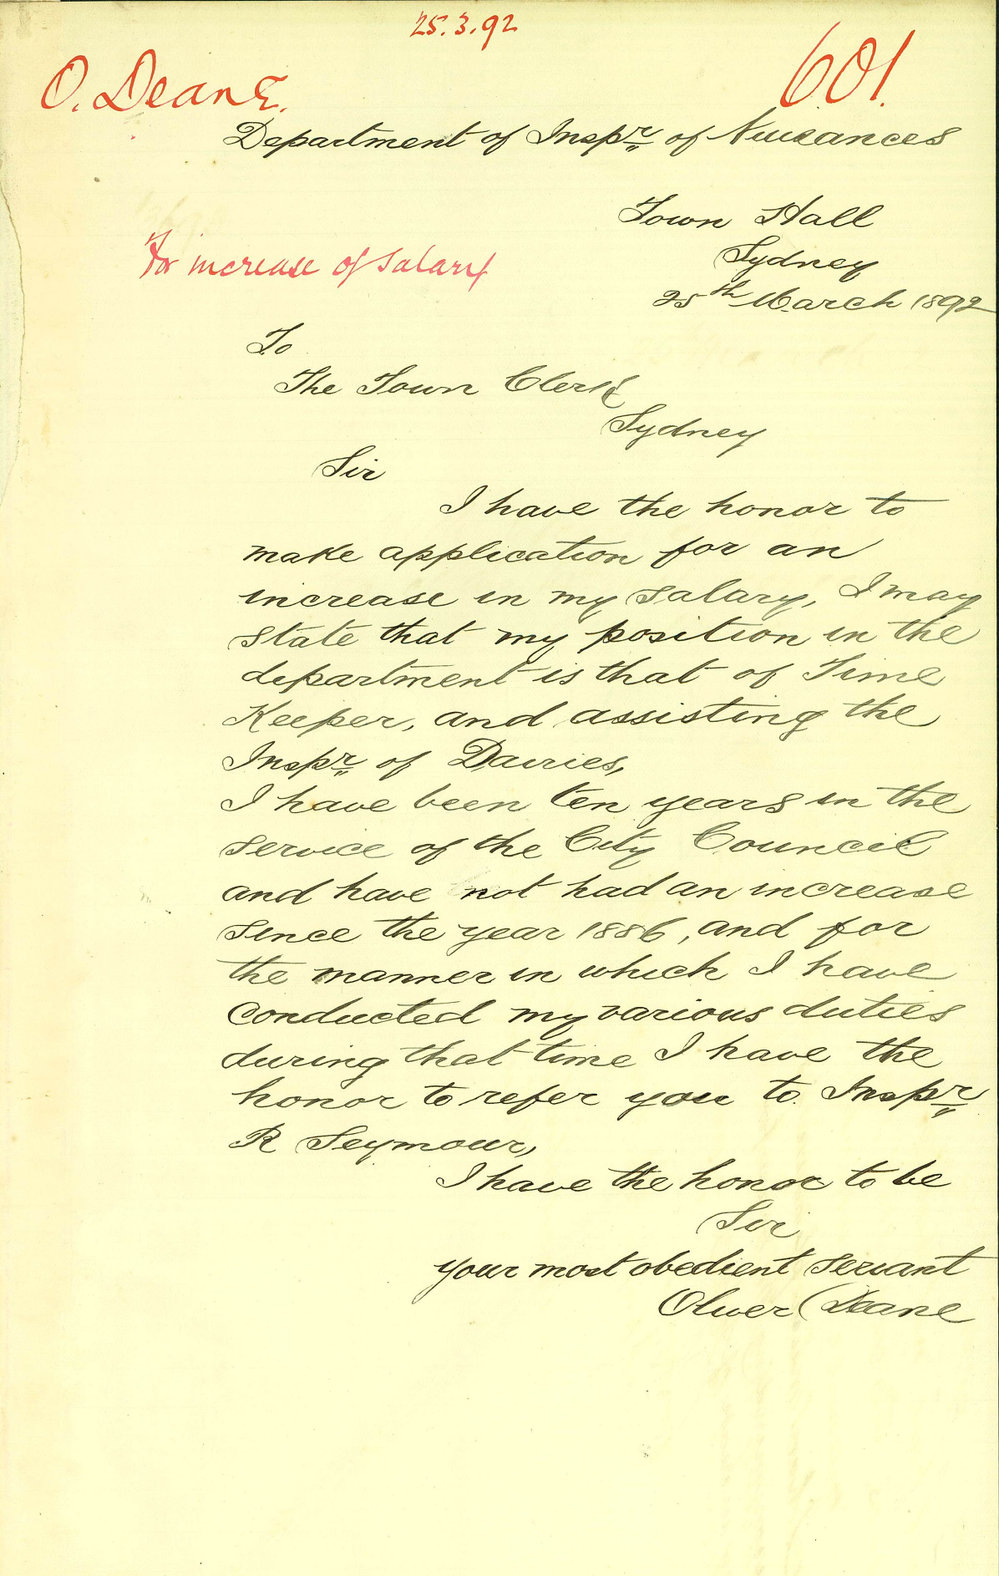 25.3.92
O. Deane.
601.
Department of Inspr. of Nuisances
Town Hall
Sydney
25th March 1892
For increase of Salary
To
The Town Clerk
Sydney
Sir
I have the honor to
make application for an
increase in my salary, I may
state that my position in the
department is that of Time
Keeper, and assisting the
Inspr. of Dairies,
I have been ten years in the
service of the City Council
and have not had an increase
since the year 1886, and for
the manner in which I have
conducted my various duties
during that time I have the
honor to refer you to Inspr.
R Seymour,
I have the honor to be
Sir
your most obedient servant
Oliver Deane